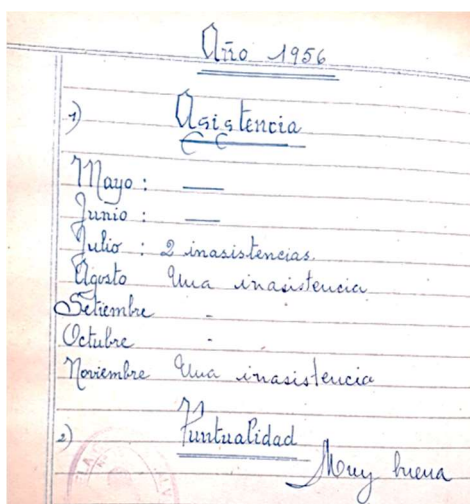 Año 1956
1) Asistencia
Mayo : —
Junio : —
Julio : 2 inasistencias
Agosto Una inasistencia
Setiembre -
Octubre -
Noviembre Una inasistencia
2) Puntualidad
Muy buena